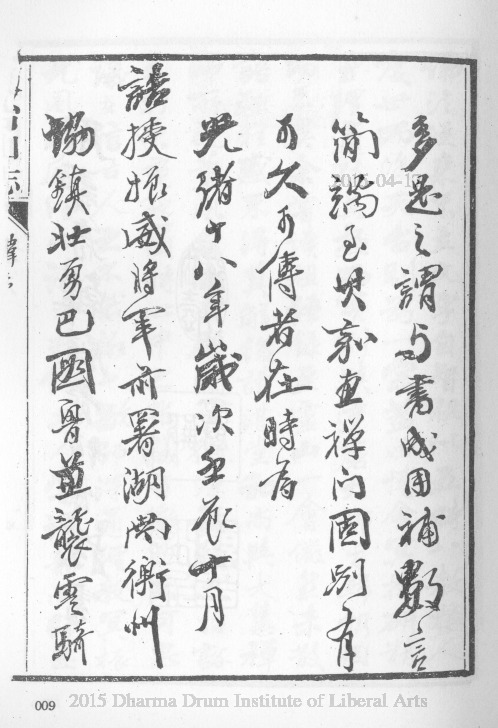 多是之謂与書成因補數言
簡端至其嘉惠禪门固別有
可久可傳者在時
光緒十八年歲次壬辰十月
誥授振威將軍前署湖南衡州
協鎮壯勇巴圖魯並襲雲騎
009
2015 Dharma Drum Institute of Liberal Arts